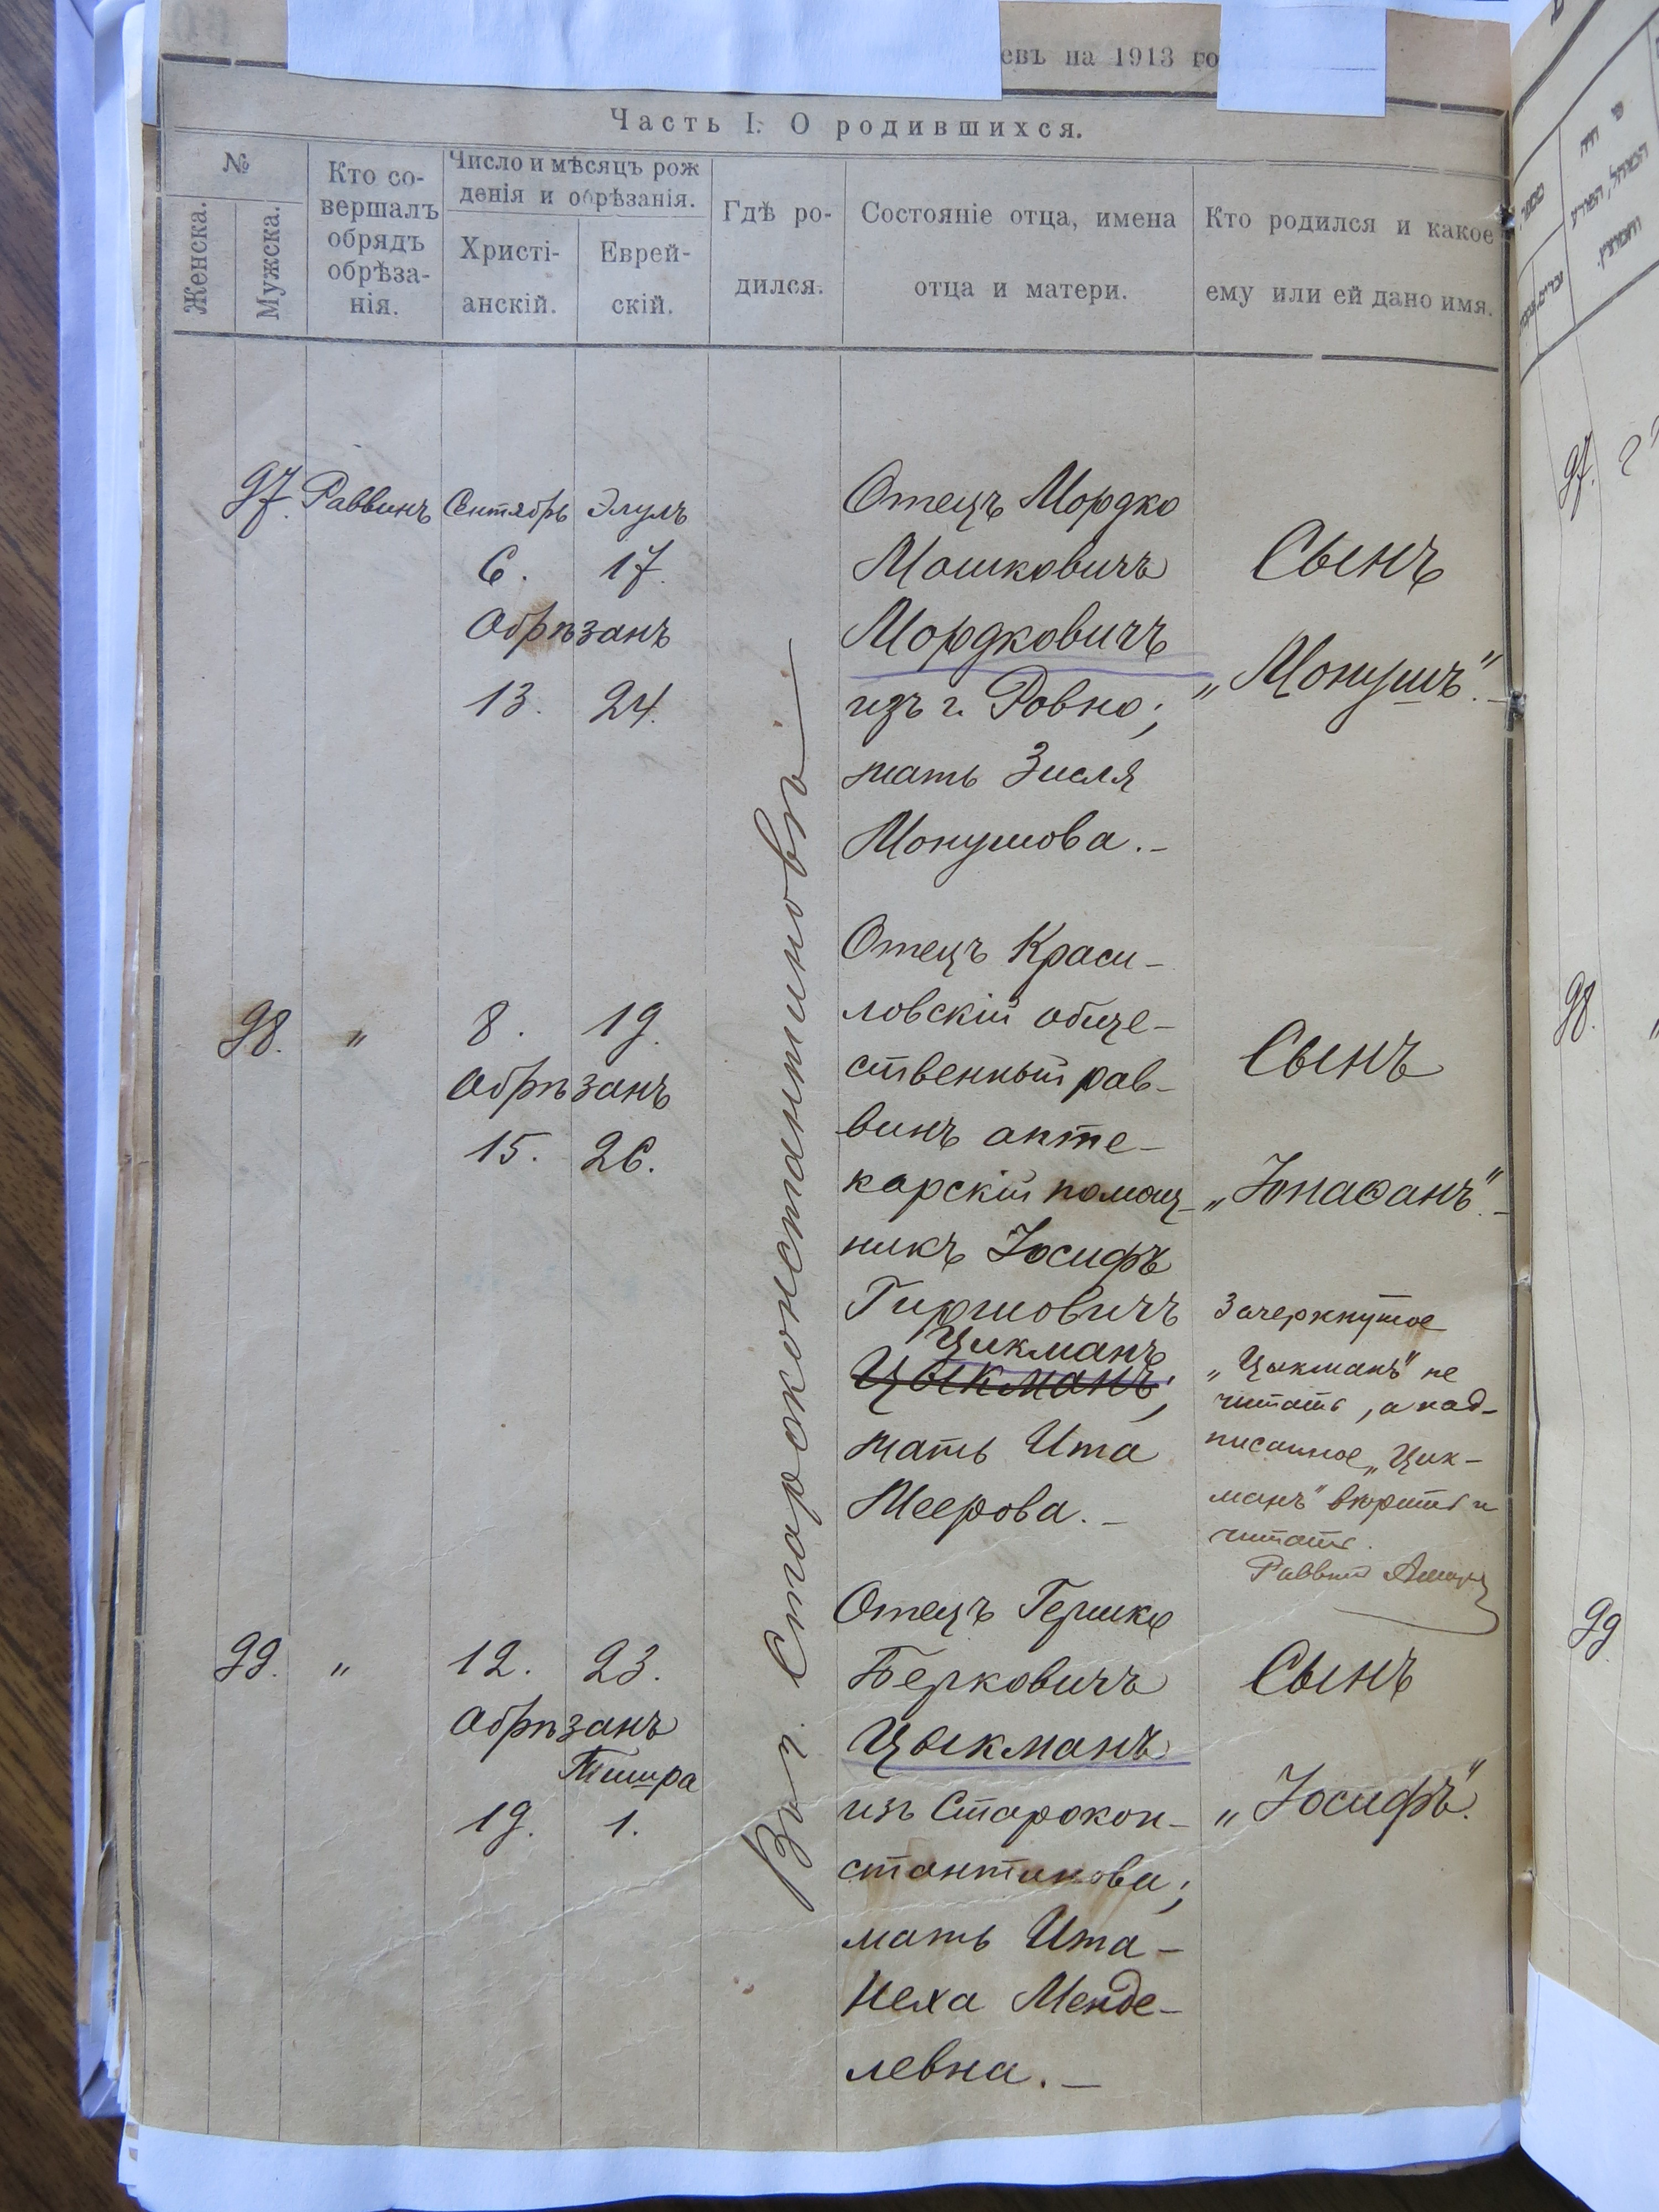 евъ на 1913 го
Часть I. О родившихся.
№
Женска.
Мужска.
Кто со-
вершалъ
обрядъ
обрѣза-
нія.
Число и мѣсяцъ рож
денія и обрѣзанія.
Христі-
анскій.
Еврей-
скій.
Гдѣ ро-
дился.
Состояніе отца, имена
отца и матери.
Кто родился и какое
ему или ей дано имя.
Въ г. Староконстантиновѣ
97. Раввинъ Сентябрь Элулъ
6. 17.
Обрѣзанъ
13. 24.
Отецъ Мордко
Мошковичъ
Мордковичъ
изъ г. Ровно;
мать Зисля
Монушова.
Сынъ
„Монушъ".
98. „ 8. 19.
Обрѣзанъ
15. 26.
Отецъ Краси-
ловскій обще-
ственный рав-
винъ апте-
карскій помощ-
никъ Іосифъ
Гиршовичъ
Цикманъ
Цыкманъ;
мать Ита
Меерова.
Сынъ
„Іонаѳанъ".
Зачеркнутое
„Цыкманъ" не
читать, а над-
писанное „Цик-
манъ" вѣрить и
читать.
Раввинъ
99. „ 12. 23.
Обрѣзанъ
Тишра
19. 1.
Отецъ Гершко
Берковичъ
Цыкманъ
изъ Старокон-
стантинова;
мать Ита-
Неха Менде-
левна.
Сынъ
„Іосифъ".
97.
98.
99